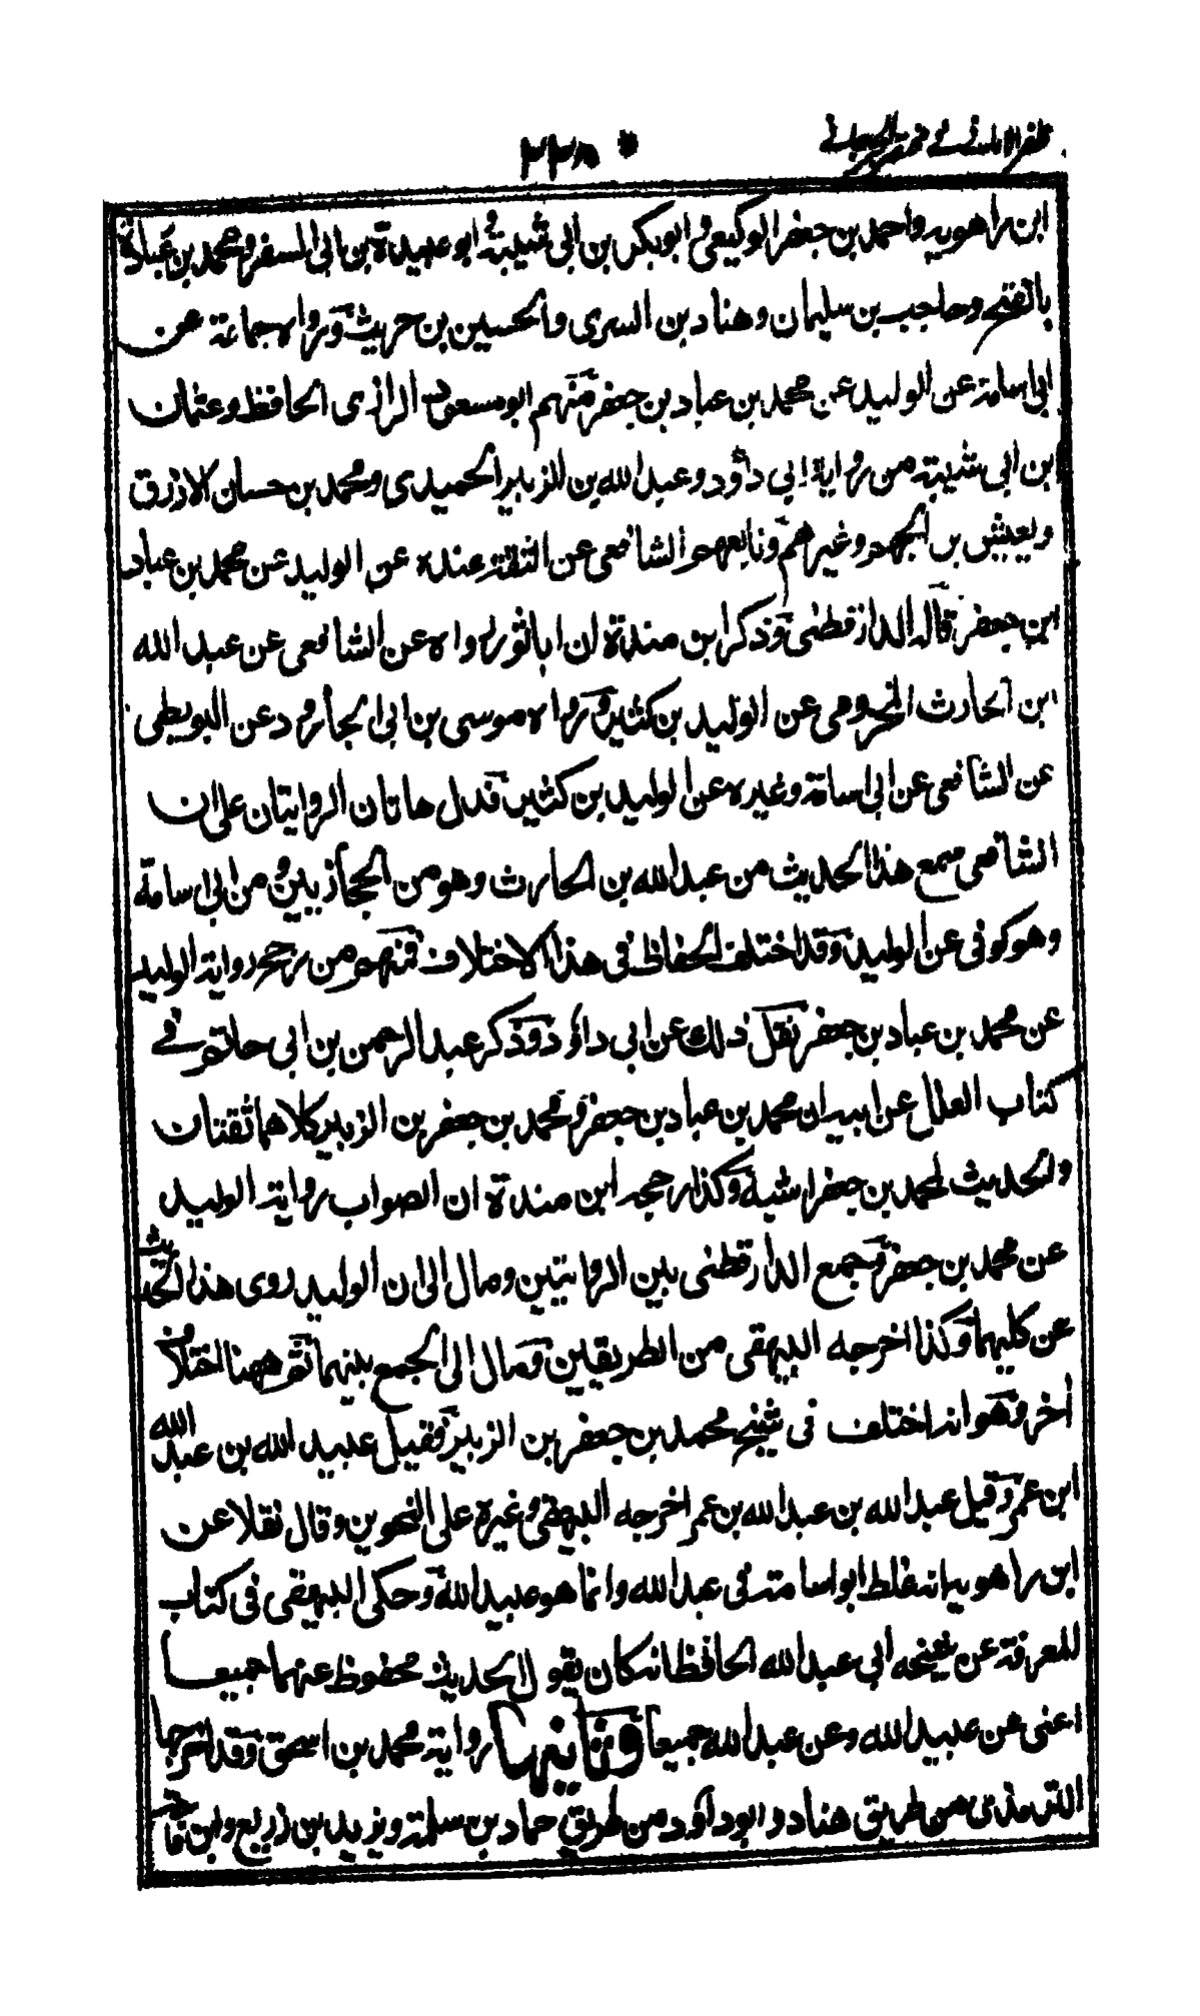 ظفر الاماني في مختصر الجرجاني
* ٢٣٨
ابن راهويه واحمد بن جعفر الوكيعى وابوبكر بن ابى شيبة وابو عبيدة بن ابى السفر ومحمد بن عبادة
بالفتح وحاجب بن سليمان وهناد بن السرى والحسين بن حريث ورواه جماعة عن
ابى اسامة عن الوليد عن محمد بن عباد بن جعفر منهم ابو مسعود الرازى الحافظ وعثمان
ابن ابى شيبة من رواية ابي داؤد وعبد الله بن الزبير الحميدى ومحمد بن حسان الازرق
ويعيش بن الجهم وغيرهم وتابعهم الشافعى عن الثقة عنده عن الوليد عن محمد بن عباد
ابن جعفر قاله الدارقطنى وذكر ابن مندة ان ابا ثور رواه عن الشافعى عن عبد الله
ابن الحارث المخزومى عن الوليد بن كثير ورواه موسى بن ابى الجارود عن البويطى
عن الشافعى عن ابى اسامة وغيره عن الوليد بن كثير فدل هاتان الروايتان على ان
الشافعى سمع هذا الحديث من عبد الله بن الحارث وهو من الحجازيين ومن ابى اسامة
وهو كوفى عن الوليد وقد اختلف الحفاظ فى هذا الاختلاف فمنهم من رجح رواية الوليد
عن محمد بن عباد بن جعفر نقل ذلك عن ابى داؤد وذكر عبد الرحمن بن ابى حاتم في
كتاب العلل عن ابيه ان محمد بن عباد بن جعفر ومحمد بن جعفر بن الزبير كلاهما ثقتان
والحديث لمحمد بن جعفر اشبه وكذا رجحه ابن مندة ان الصواب رواية الوليد
عن محمد بن جعفر وجمع الدارقطنى بين الروايتين ومال الى ان الوليد روى هذا الحديث
عن كليهما وكذا اخرجه البيهقى من الطريقين ومال الى الجمع بينهما ثم ههنا اختلاف
أخر وهو انه اختلف فى شيخ محمد بن جعفر بن الزبير فقيل عبيد الله بن عبد الله
ابن عمر وقيل عبد الله بن عبد الله بن عمر اخرجه البيهقى وغيره على النحوين وقال نقلا عن
ابن راهويه انه غلط ابو اسامة فى عبد الله وانما هو عبيد الله وحكى البيهقى فى كتاب
المعرفة عن شيخه ابي عبد الله الحافظ انه كان يقول الحديث محفوظ عنهما جميعا
اعنى عن عبيد الله وعن عبد الله جميعا وثانيها رواية محمد بن اسحق وقد اخرجها
الترمذى من طريق هناد وابو داؤد من طريق حماد بن سلمة ويزيد بن زريع وابن ماجة